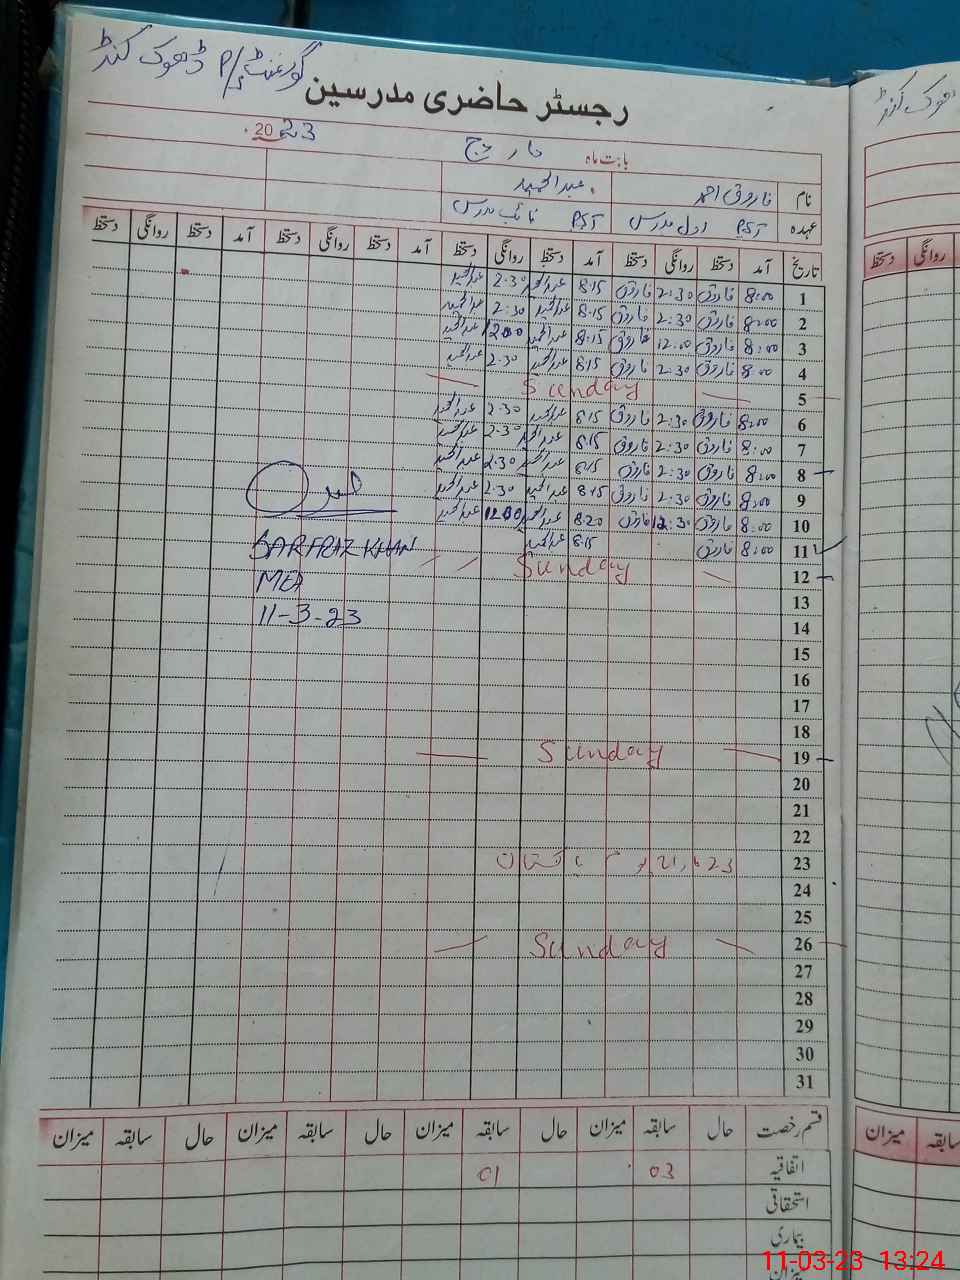 گورنمنٹ P/S ڈھوک کنڈ
رجسٹر حاضری مدرسین
بابت ماہ مارچ 2023
نام فاروق احمد عبدالحمید
عہدہ PST اول مدرس PST نائب مدرس
تاریخ آمد دستخط روانگی دستخط آمد دستخط روانگی دستخط آمد دستخط روانگی دستخط آمد دستخط روانگی دستخط
1 8:00 فاروق 2:30 فاروق 8:15 عبدالحمید 2:30 عبدالحمید
2 8:00 فاروق 2:30 فاروق 8:15 عبدالحمید 2:30 عبدالحمید
3 8:00 فاروق 12:00 فاروق 8:15 عبدالحمید 12:00 عبدالحمید
4 8:00 فاروق 2:30 فاروق 8:15 عبدالحمید 2:30 عبدالحمید
5 Sunday
6 8:00 فاروق 2:30 فاروق 8:15 عبدالحمید 2:30 عبدالحمید
7 8:00 فاروق 2:30 فاروق 8:15 عبدالحمید 2:30 عبدالحمید
8 8:00 فاروق 2:30 فاروق 8:15 عبدالحمید 2:30 عبدالحمید
9 8:00 فاروق 2:30 فاروق 8:15 عبدالحمید 2:30 عبدالحمید
10 8:00 فاروق 12:30 فاروق 8:20 عبدالحمید 12:00 عبدالحمید
11 8:00 فاروق 8:15 عبدالحمید
SARFRAZ KHAN
12 Sunday
MEA
13
11-3-23
14
15
16
17
18
19 Sunday
20
21
22
23 23 مارچ یوم پاکستان
24
25
26 Sunday
27
28
29
30
31
قسم رخصت حال سابقہ میزان حال سابقہ میزان حال سابقہ میزان حال سابقہ میزان
اتفاقیہ 03 01
استحقاقی
بیماری
میزان
روانگی دستخط
سابقہ میزان
11-03-23 13:24